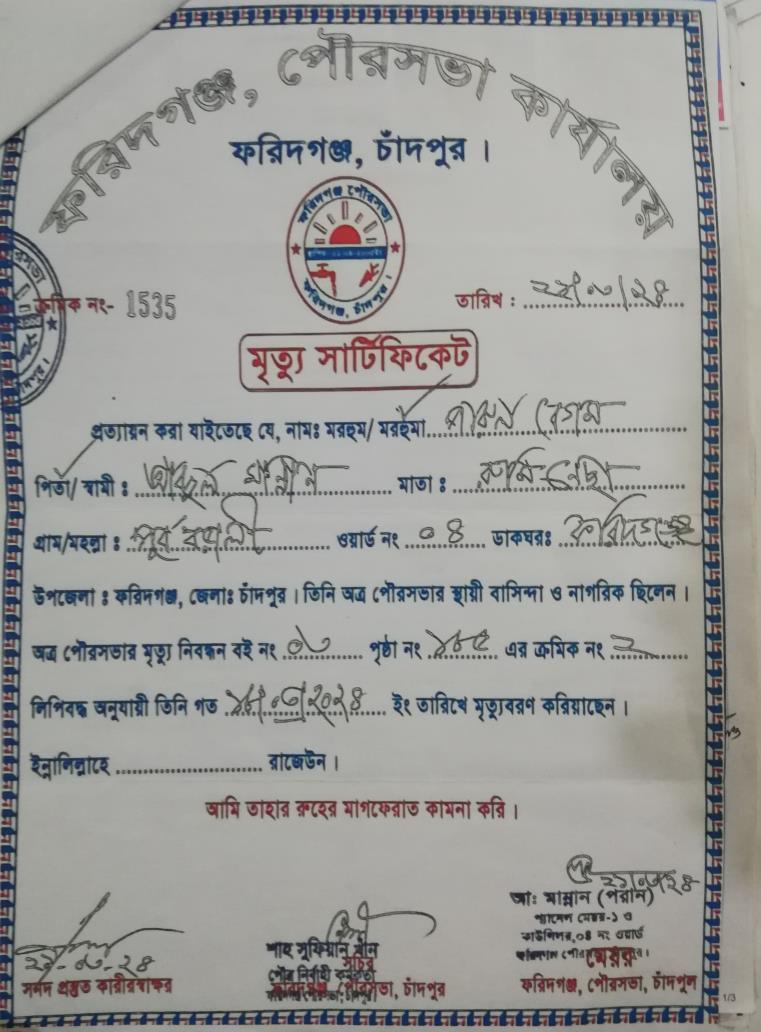 ফরিদগঞ্জ, পৌরসভা কার্যালয়
ফরিদগঞ্জ, চাঁদপুর ।
ফরিদগঞ্জ পৌরসভা
ফরিদগঞ্জ, চাঁদপুর ।
ক্রমিক নং- 1535
তারিখ : ২৪
মৃত্যু সার্টিফিকেট
প্রত্যায়ন করা যাইতেছে যে, নামঃ মরহুম/ মরহুমা বেগম
পিতা/ স্বামী : আব্দুল মান্নান মাতা :
গ্রাম/মহল্লা : পূর্ব ওয়ার্ড নং ০৪ ডাকঘরঃ ফরিদগঞ্জ
উপজেলা : ফরিদগঞ্জ, জেলাঃ চাঁদপুর । তিনি অত্র পৌরসভার স্থায়ী বাসিন্দা ও নাগরিক ছিলেন ।
অত্র পৌরসভার মৃত্যু নিবন্ধন বই নং পৃষ্ঠা নং এর ক্রমিক নং ২
লিপিবদ্ধ অনুযায়ী তিনি গত ইং তারিখে মৃত্যুবরণ করিয়াছেন ।
ইন্নালিল্লাহে .............................. রাজেউন ।
আমি তাহার রুহের মাগফেরাত কামনা করি ।
আঃ মান্নান (পরান)
প্যানেল মেয়র-১ ও
কাউন্সিলর, ০৪ নং ওয়ার্ড
মেয়র
ফরিদগঞ্জ, পৌরসভা, চাঁদপুর
শাহ সুফিয়ান খান
সচিব
পৌর নির্বাহী কর্মকর্তা
ফরিদগঞ্জ, পৌরসভা, চাঁদপুর
সনদ প্রস্তুত কারীর স্বাক্ষর
1/3